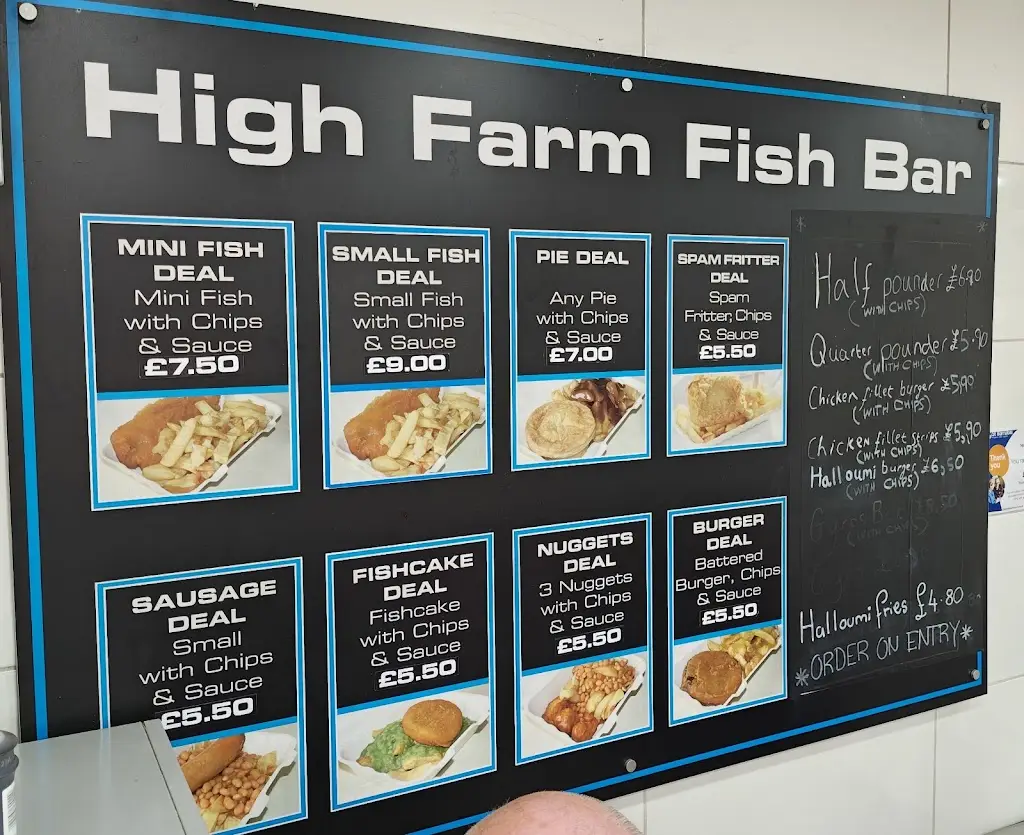 High Farm Fish Bar
MINI FISH
DEAL
Mini Fish
with Chips
& Sauce
£7.50
SMALL FISH
DEAL
Small Fish
with Chips
& Sauce
£9.00
PIE DEAL
Any Pie
with Chips
& Sauce
£7.00
SPAM FRITTER
DEAL
Spam
Fritter, Chips
& Sauce
£5.50
SAUSAGE
DEAL
Small
with Chips
& Sauce
£5.50
FISHCAKE
DEAL
Fishcake
with Chips
& Sauce
£5.50
NUGGETS
DEAL
3 Nuggets
with Chips
& Sauce
£5.50
BURGER
DEAL
Battered
Burger, Chips
& Sauce
£5.50
Half pounder £6.90
(WITH CHIPS)
Quarter pounder £5.90
(WITH CHIPS)
Chicken fillet burger £5,90
(WITH CHIPS)
Chicken fillet strips £5,90
(WITH CHIPS)
Halloumi burger £6,50
(WITH CHIPS)
(WITH CHIPS)
Halloumi fries £4.80
*ORDER ON ENTRY*
Thank
you